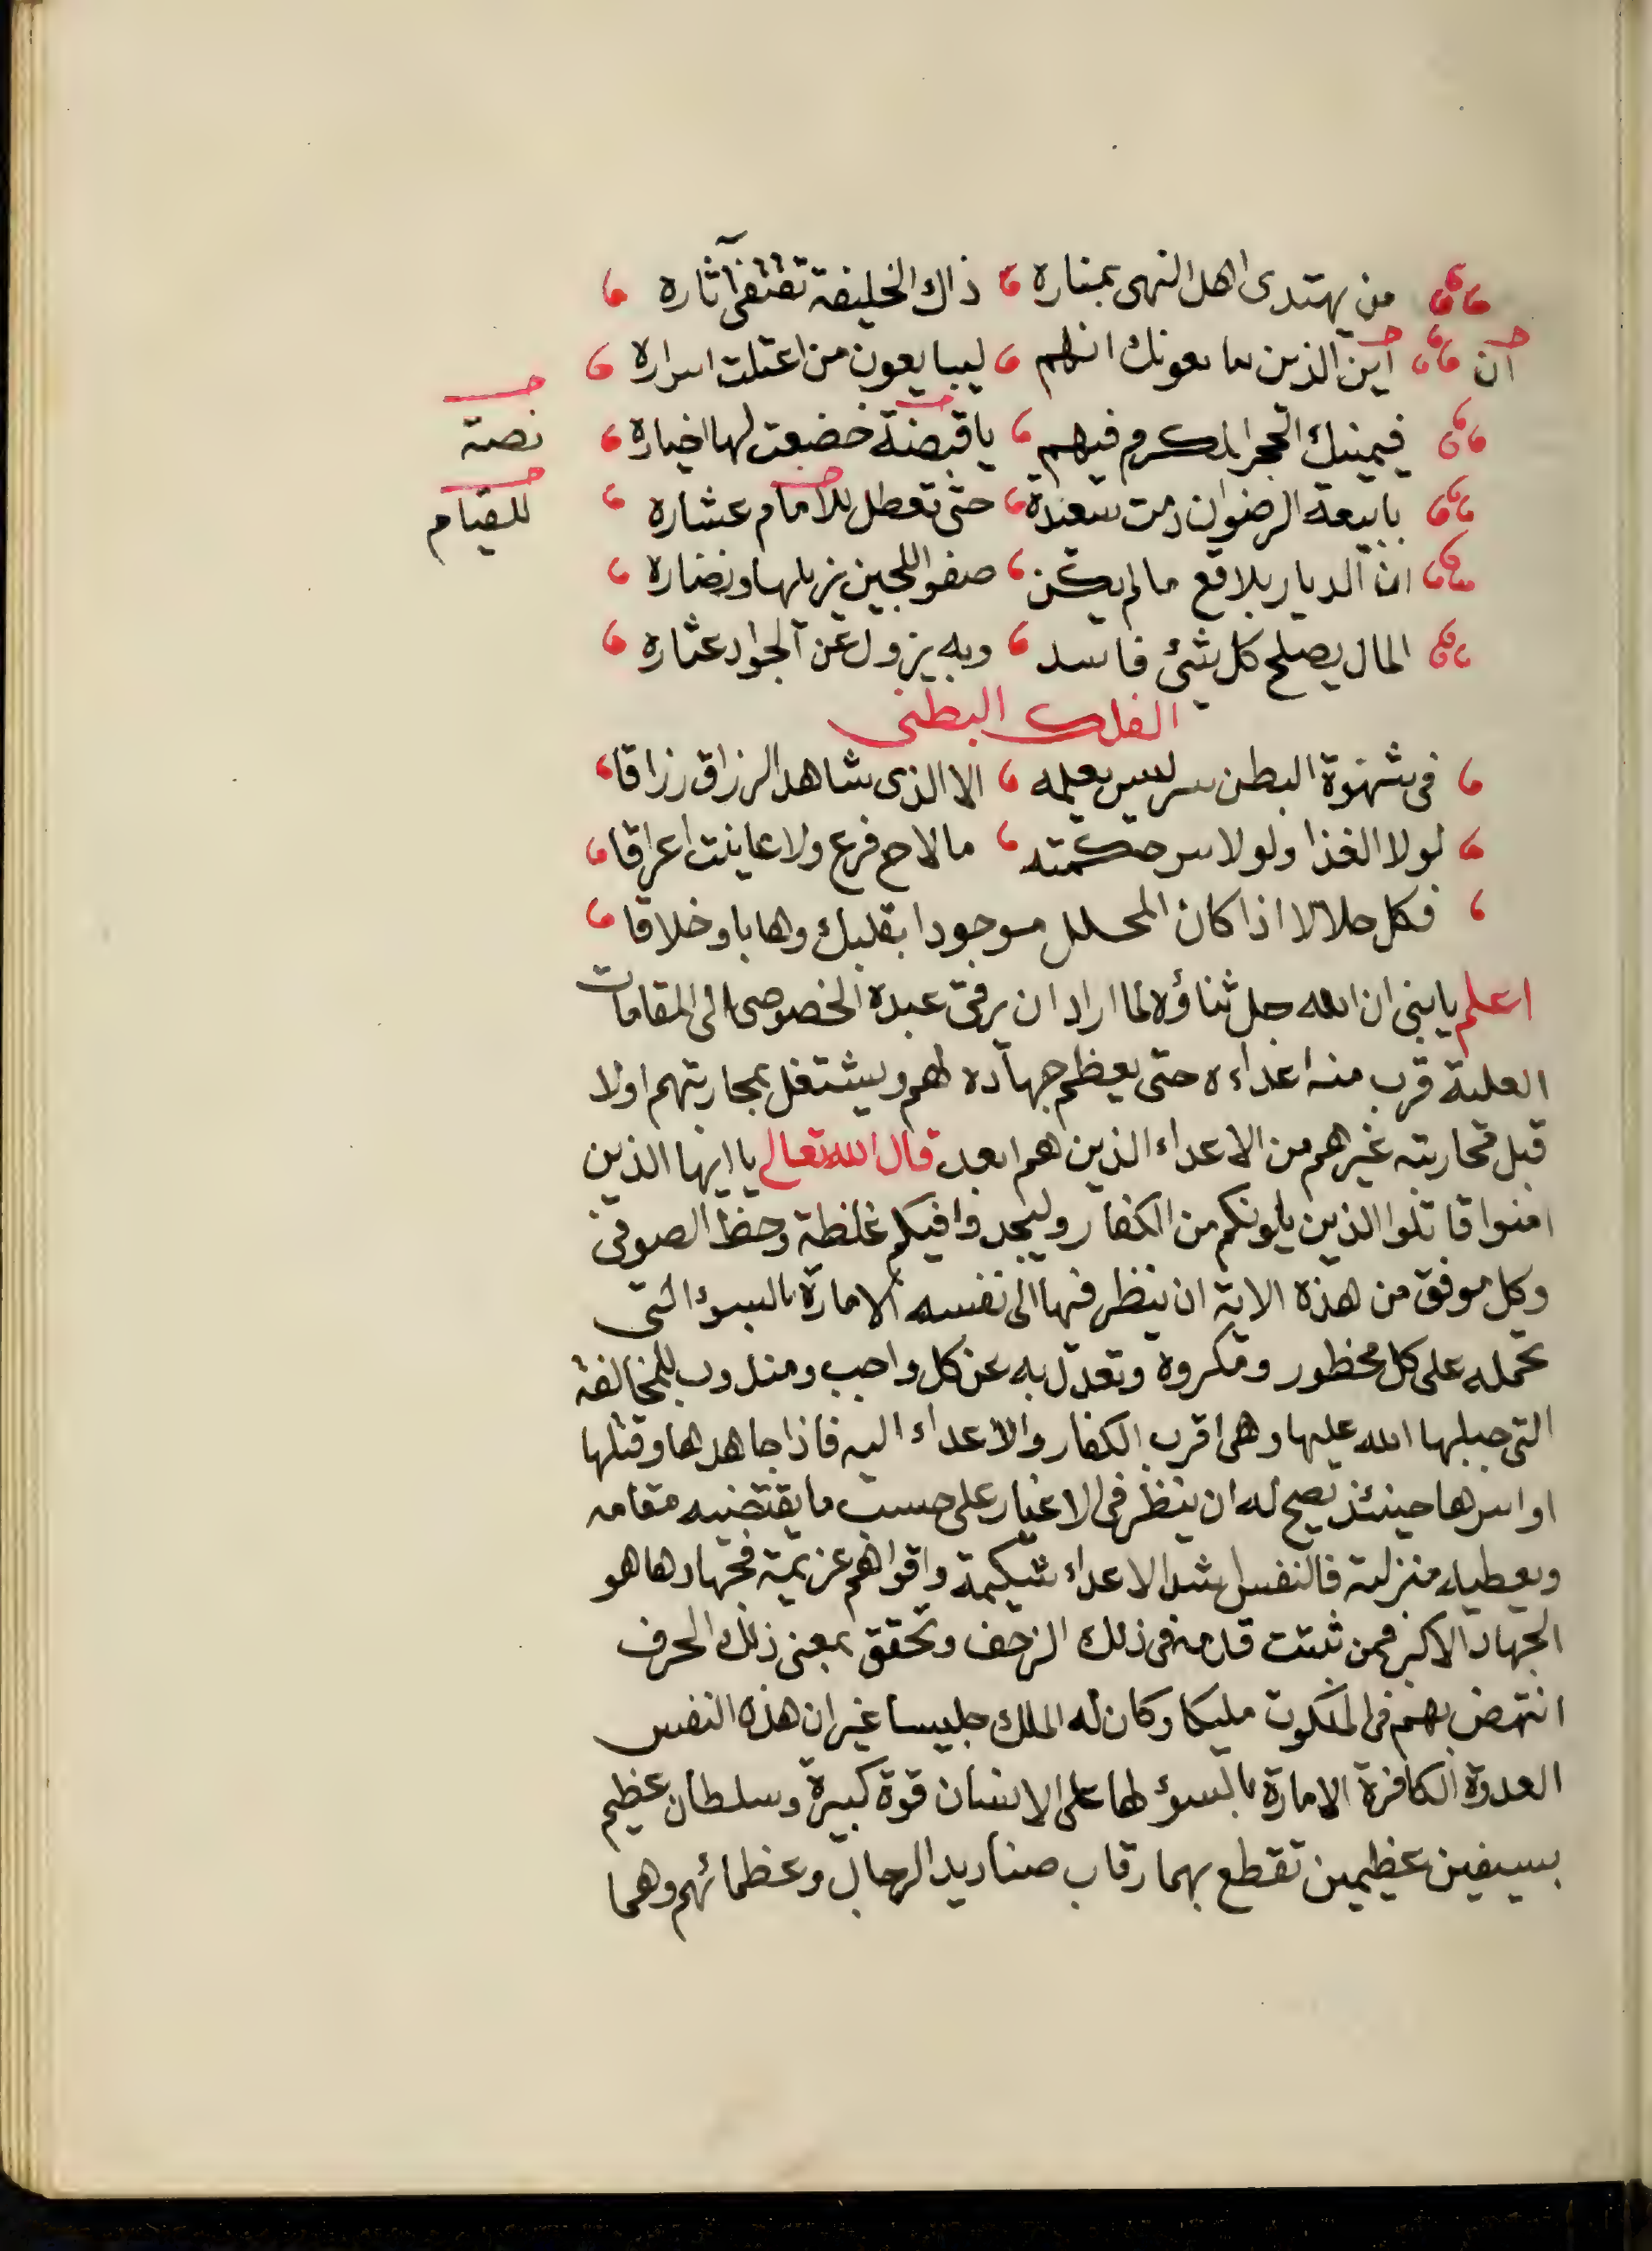 من يهتدى اهل النهى بمناره ذاك الخليفة تقتفى آثاره
ان اين الذين يبايعونك انهم ليبايعون من اعتلت اسراره
فيمينك الحجر المكرم فيهم يا قبضة خضعت لها اخياره
نصبة
يابيعة الرضوان دمت سعيدة حتى تعطل للامام عشاره
للقيام
ان الديار بلاقع مالم يكن صفو اللجين يزيلها ونضاره
المال يصلح كل شئ فاسد وبه يزول عن الجواد عثاره
الفلك البطنى
فى شهوة البطن سر ليس يعلمه الا الذى شاهد الرزاق رزاقا
لولا الغذا ولولا سر حكمته مالاح فرع ولا عاينت اعراقا
فكل حلالا اذا كان المحلل موجودا بقلبك وهابا وخلاقا
اعلم يابنى ان الله جل ثناؤه لما اراد ان يرقى عبده الخصوصى الى المقامات
العلية قرب منه اعداءه حتى يعظم جهاده لهم ويشتغل بمحاربتهم اولا
قبل محاربته غيرهم من الاعداء الذين هم ابعد قال الله تعالى يا ايها الذين
امنوا قاتلوا الذين يلونكم من الكفار وليجدوا فيكم غلظة وحظ الصوفى
وكل موفق من هذه الاية ان ينظر فيها الى نفسه الامارة بالسوء التى
تحمله على كل محظور ومكروه وتعدل به عن كل واجب ومندوب للمخالفة
التى جبلها الله عليها وهى اقرب الكفار والاعداء اليه فاذا جاهدها وقتلها
او اسرها حينئذ يصح له ان ينظر فى الاغيار على حسب ما يقتضيه مقامه
ويعطيه منزلته فالنفس اشد الاعداء شكيمة واقواهم عزيمة فجهادها هو
الجهاد الاكبر فمن ثبتت قدمه فى ذلك الزحف وتحقق بمعنى ذلك الحرف
انتهض بهم فى الملكوت مليكا وكان له الملك جليسا غير ان هذه النفس
العدوة الكافرة الامارة بالسوء لها على الانسان قوة كبيرة وسلطان عظيم
بسيفين عظيمين تقطع بهما رقاب صناديد الرجال وعظمائهم وهما